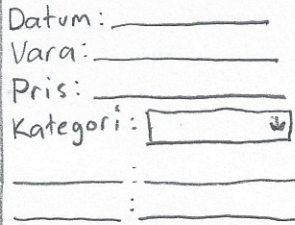 Datum:
Vara:
Pris:
Kategori:
:
: